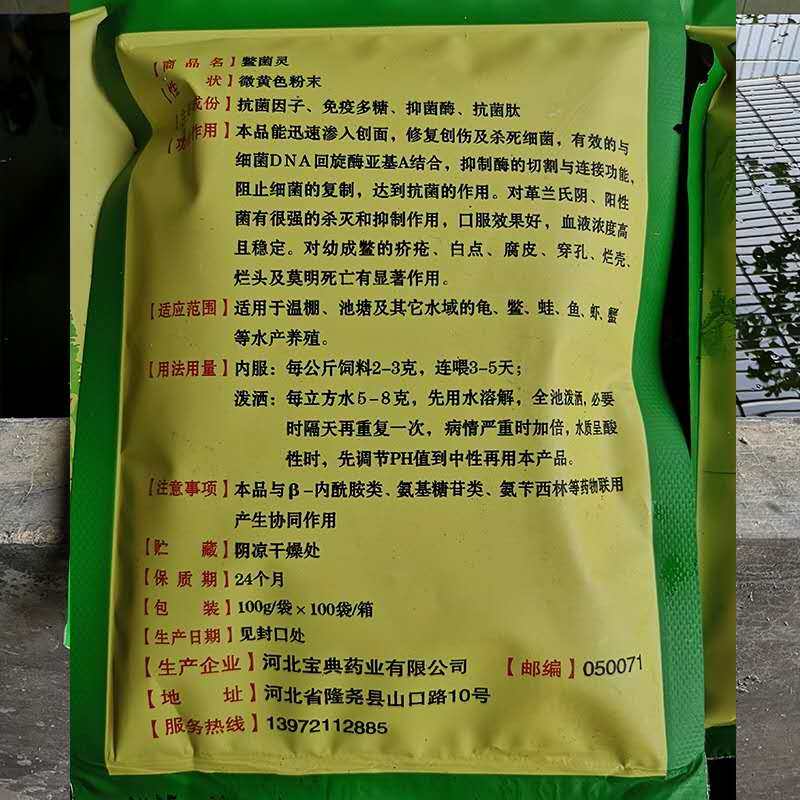 【商品名】鳖菌灵
【性状】微黄色粉末
成份】抗菌因子、免疫多糖、抑菌酶、抗菌肽
【功作用】本品能迅速渗入创面，修复创伤及杀死细菌，有效的与
细菌DNA回旋酶亚基A结合，抑制酶的切割与连接功能，
阻止细菌的复制，达到抗菌的作用。对革兰氏阴、阳性
菌有很强的杀灭和抑制作用，口服效果好，血液浓度高
且稳定。对幼成鳖的疥疮、白点、腐皮、穿孔、烂壳、
烂头及莫明死亡有显著作用。
【适应范围】适用于温棚、池塘及其它水域的龟、鳖、蛙、鱼、虾、蟹
等水产养殖。
【用法用量】内服：每公斤饲料2-3克，连喂3-5天；
泼洒：每立方水5-8克，先用水溶解，全池泼洒，必要
时隔天再重复一次，病情严重时加倍，水质呈酸
性时，先调节PH值到中性再用本产品。
【注意事项】本品与β-内酰胺类、氨基糖苷类、氨苄西林等药物联用
产生协同作用
【贮藏】阴凉干燥处
【保质期】24个月
【包装】100g/袋×100袋/箱
【生产日期】见封口处
【生产企业】河北宝典药业有限公司 【邮编】050071
【地址】河北省隆尧县山口路10号
【服务热线】13972112885